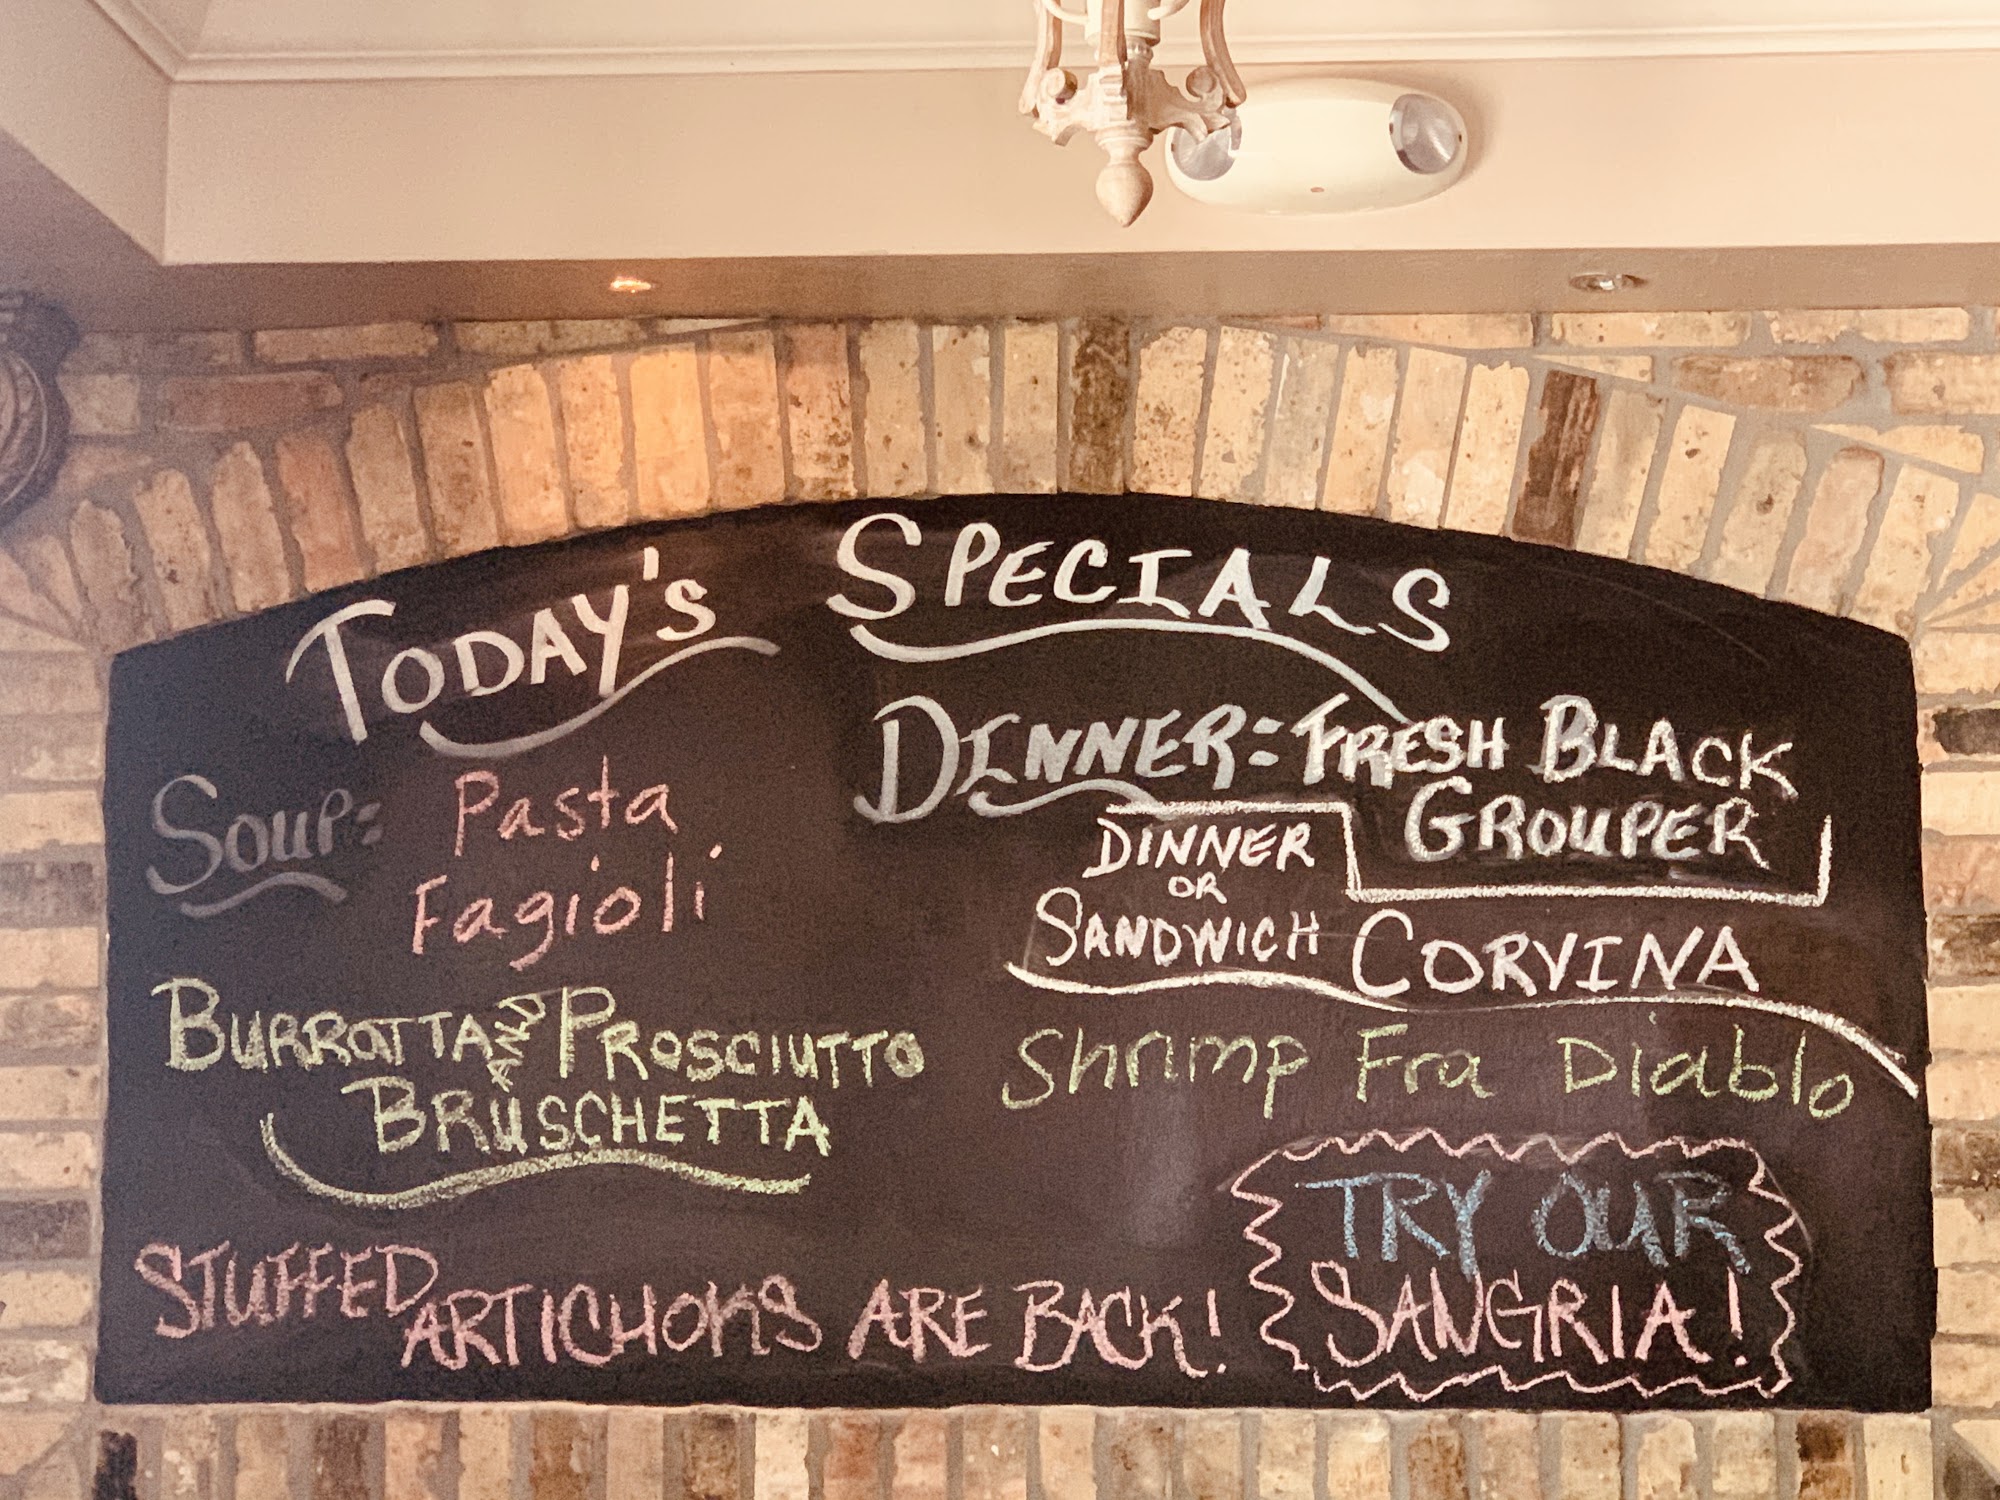 TODAY'S SPECIALS
SOUP: Pasta
Fagioli
BURRATTA AND PROSCIUTTO
BRUSCHETTA
STUFFED ARTICHOKS ARE BACK!
DINNER: FRESH BLACK
GROUPER
DINNER
OR
SANDWICH CORVINA
Shrimp Fra Diablo
TRY OUR
SANGRIA!